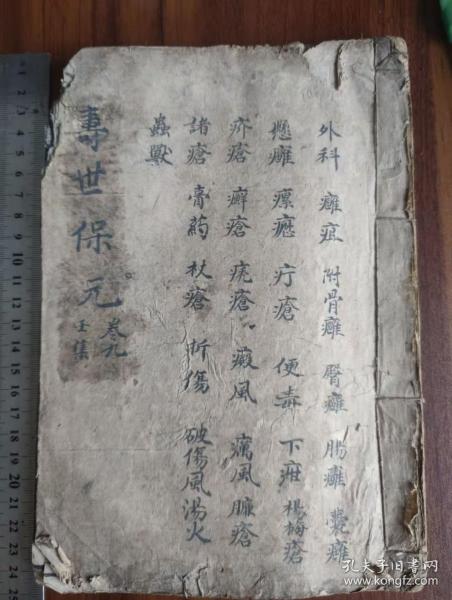 外科 癰疽 附骨癰 臀癰 腸癰 囊癰
懸癰 瘰癧 疔瘡 便毒 下疳 楊梅瘡
疥瘡 癬瘡 疣瘡 癜風 癘風 臁瘡
諸瘡 膏药 杖瘡 折傷 破傷風 湯火
蟲獸
壽世保元 卷九
壬集
孔夫子旧书网
www.kongfz.com